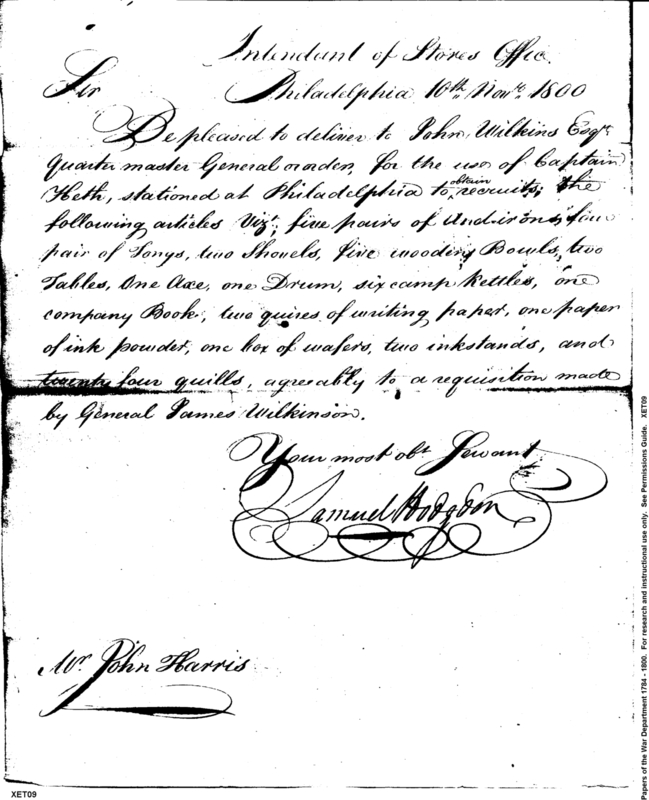 Intendant of Stores Office.
Sir Philadelphia 10th Novr. 1800
Be pleased to deliver to John Wilkins Esqr.
Quarter master General or order, for the use of Captain
Heth, stationed at Philadelphia to obtain recruits; the
following articles Vizt. five pairs of Andirons,
pair of Tongs, two Shovels, five wooden Bowls, two
Tables, One Axe, one Drum, six camp kettles, one
company Book, two quires of writing paper, one paper
of ink powder, one box of wafers, two inkstands, and
twenty four quills, agreably to a requisition made
by General James Wilkinson.
Your most obt. Servant
Samuel Hodgdon
Mr. John Harris
XET09
Papers of the War Department 1784 - 1800. For research and instructional use only. See Permissions Guide. XET09